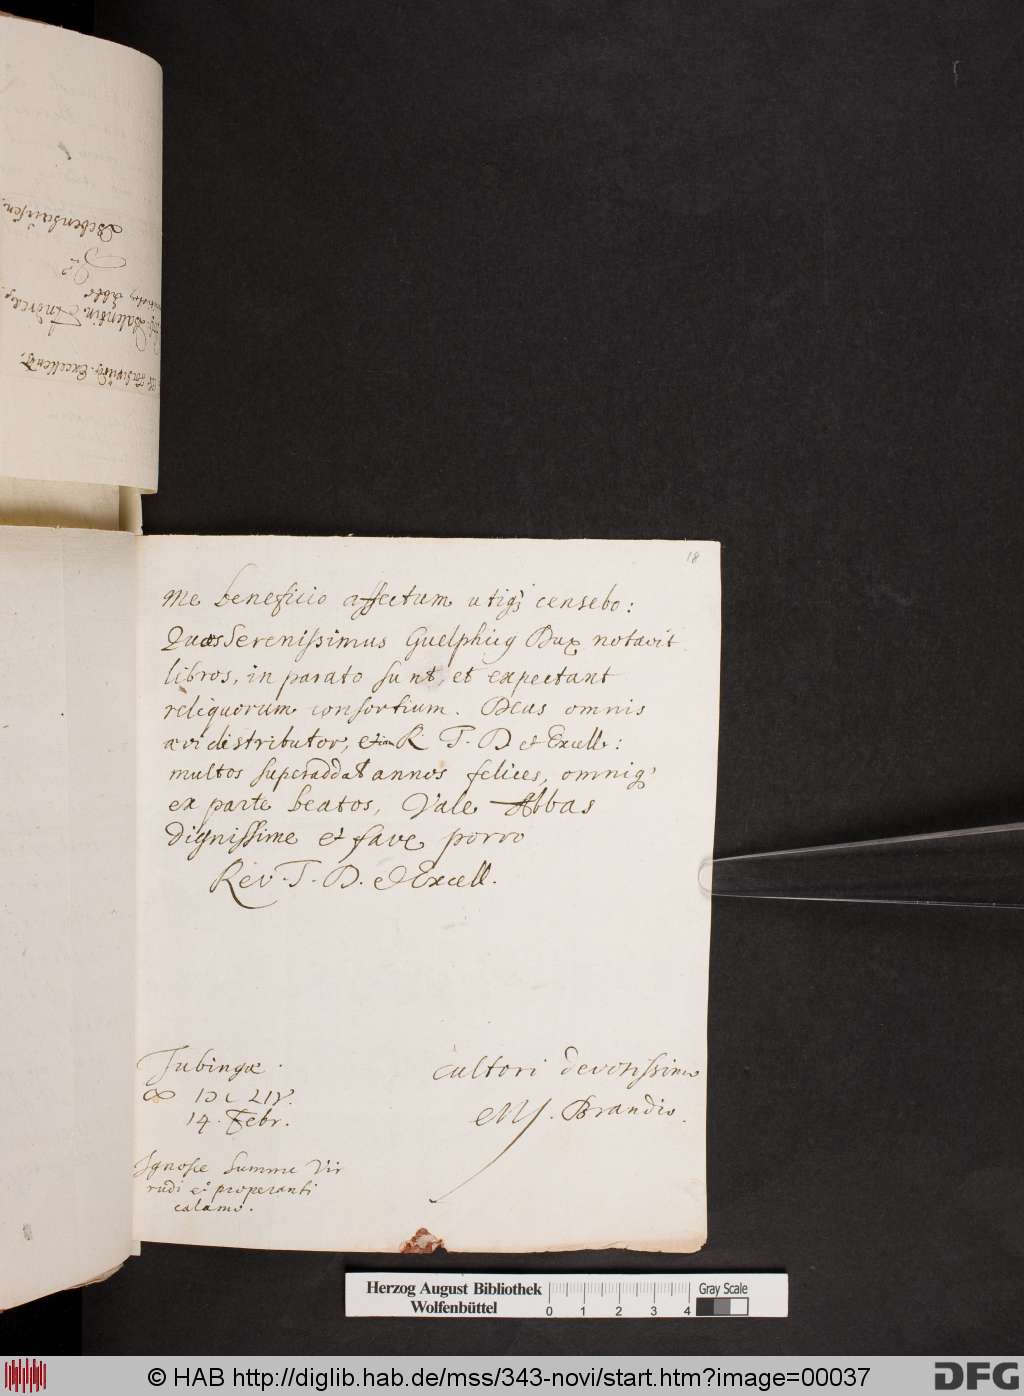 18
me beneficio affectum utiq; censebo:
Quos Serenissimus Guelphicus Dux notavit
libros, in parato sunt, et expectant
reliquorum consortium. Deus omnis
ævi distributor, etiam R T. D et Excell:
multos superaddat annos felices, omniq;
ex parte beatos, Vale Abbas
dignissime et fave porro
Rev. T. D. et Excell.
Tubingæ.
14. Febr.
cultori devotissimo
M J. Brandis.
Ignosce Summe Vir
rudi et properanti
calamo.
Bebenhausen.
Valentin. Andreæ,
Excellent.
Herzog August Bibliothek
Wolfenbüttel
0 1 2 3 4
Gray Scale
© HAB http://diglib.hab.de/mss/343-novi/start.htm?image=00037
DFG